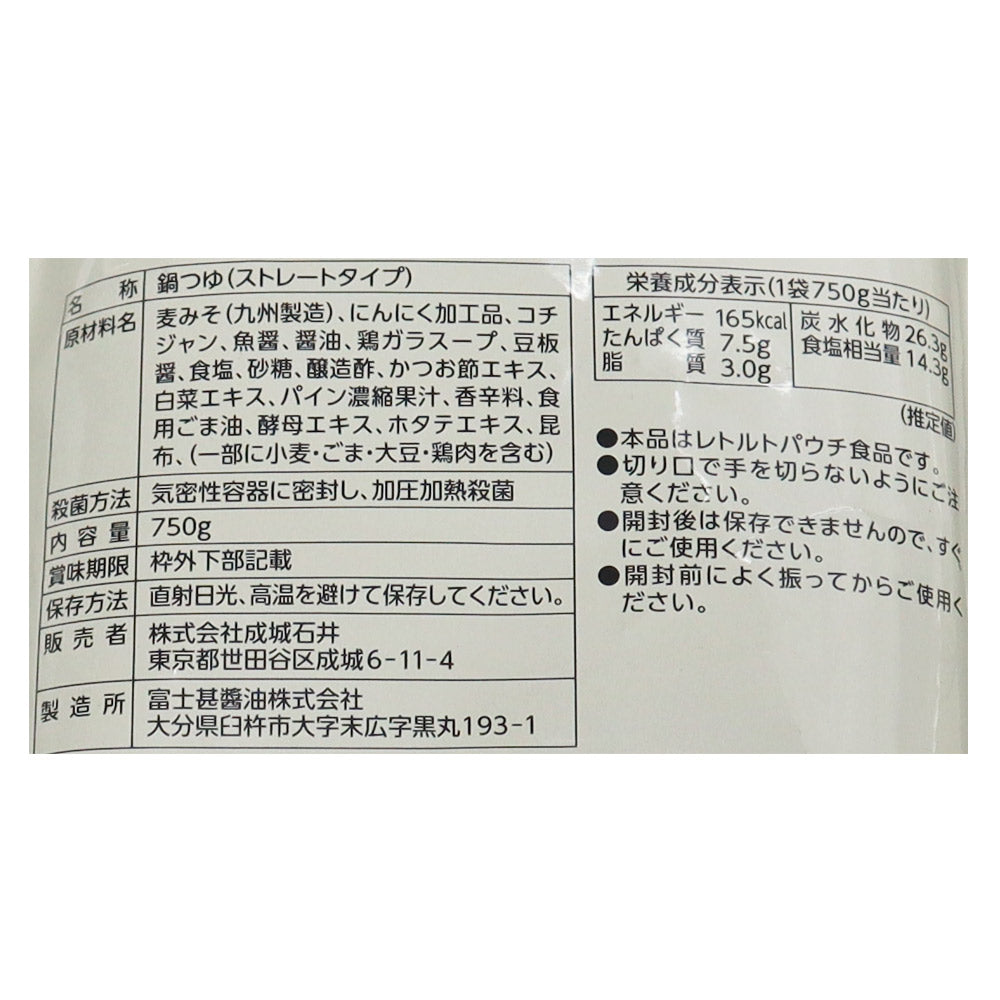 名称 鍋つゆ(ストレートタイプ)
原材料名 麦みそ(九州製造)、にんにく加工品、コチ
ジャン、魚醤、醤油、鶏ガラスープ、豆板
醤、食塩、砂糖、醸造酢、かつお節エキス、
白菜エキス、パイン濃縮果汁、香辛料、食
用ごま油、酵母エキス、ホタテエキス、昆
布、(一部に小麦・ごま・大豆・鶏肉を含む)
殺菌方法 気密性容器に密封し、加圧加熱殺菌
内容量 750g
賞味期限 枠外下部記載
保存方法 直射日光、高温を避けて保存してください。
販売者 株式会社成城石井
東京都世田谷区成城6-11-4
製造所 富士甚醬油株式会社
大分県臼杵市大字末広字黒丸193-1
栄養成分表示(1袋750g当たり)
エネルギー 165kcal 炭水化物 26.3g
たんぱく質 7.5g 食塩相当量 14.3g
脂質 3.0g
(推定値)
●本品はレトルトパウチ食品です。
●切り口で手を切らないようにご注
意ください。
●開封後は保存できませんので、すぐ
にご使用ください。
●開封前によく振ってからご使用く
ださい。